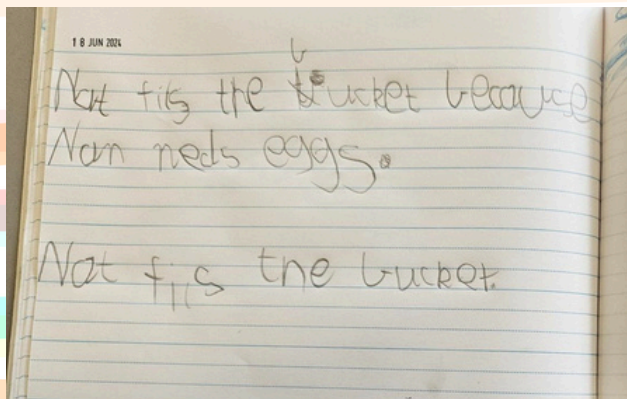 18 JUN 2024
Nat fils the bucket because
Nan neds eggs.
Nat fils the bucket.